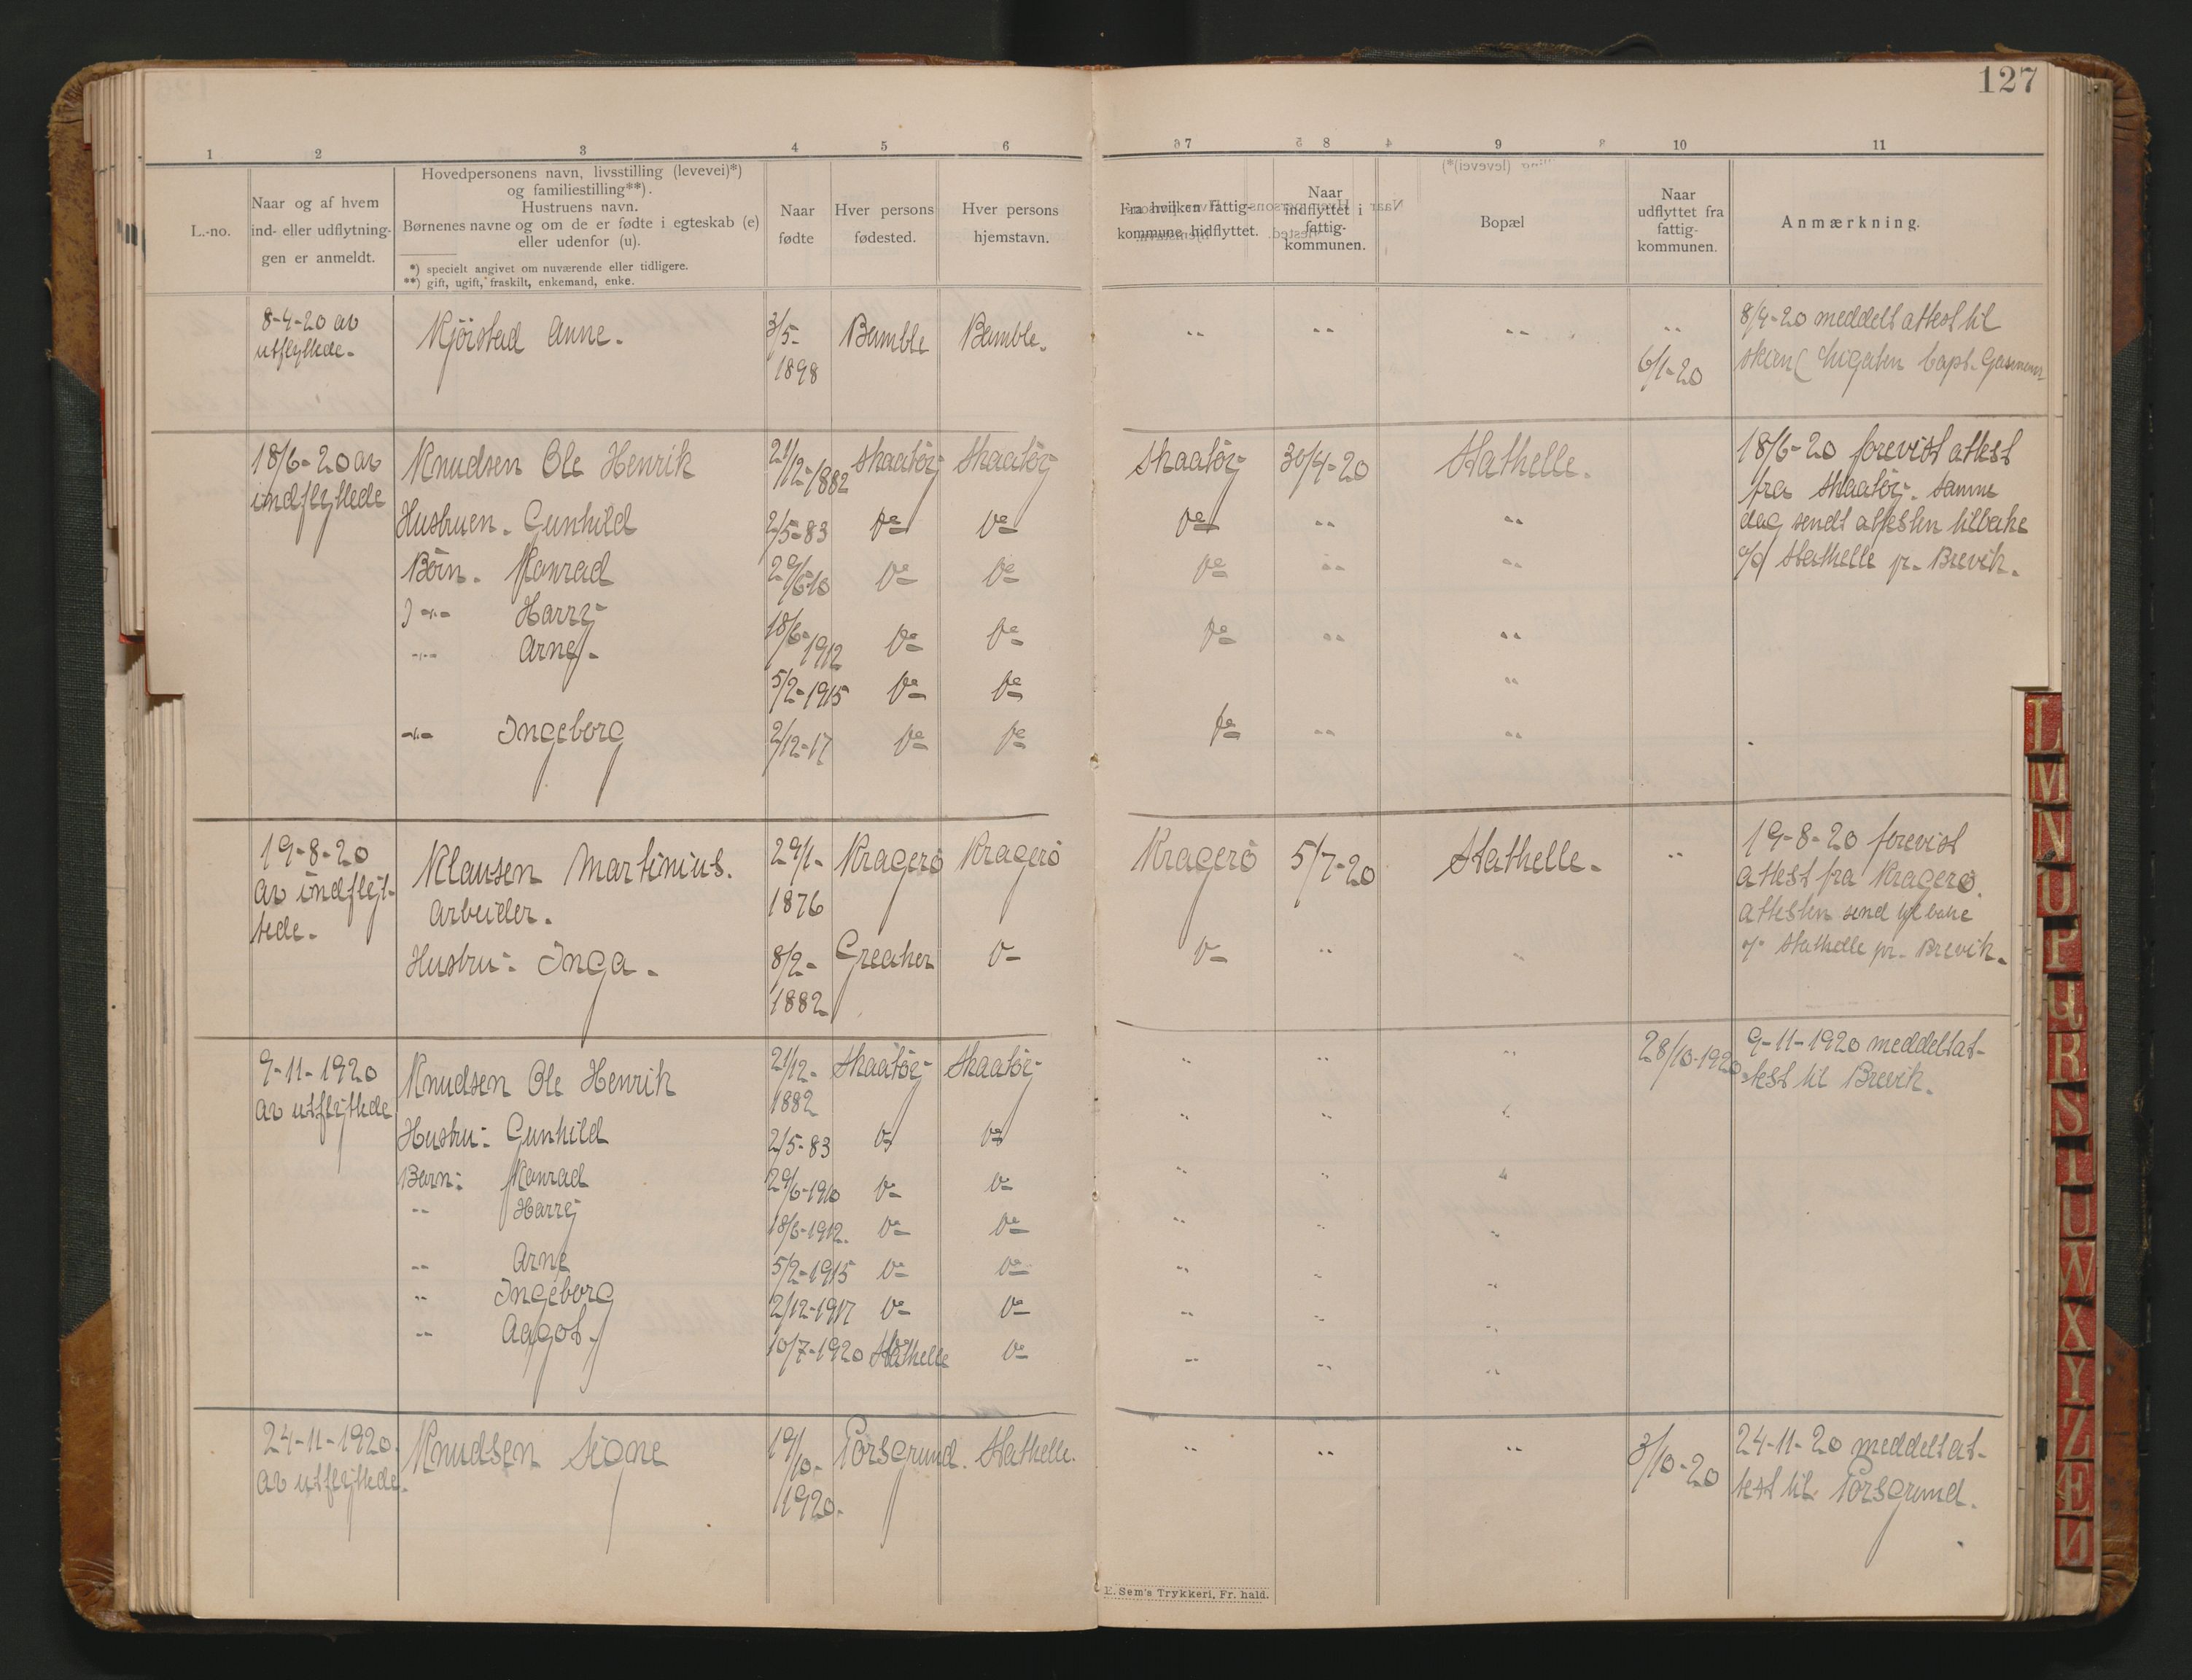 127
1 2 3 4 5 6 7 8 9 10 11
L.-no.
Naar og af hvem
ind- eller udflytnin-
gen er anmeldt.
Hovedpersonens navn, livsstilling (levevei)*)
og familiestilling**).
Hustruens navn.
Børnenes navne og om de er fødte i egteskab (e)
eller udenfor (u).
*) specielt angivet om nuværende eller tidligere.
**) gift, ugift, fraskilt, enkemand, enke.
Naar
fødte
Hver persons
fødested.
Hver persons
hjemstavn.
Fra hvilken fattig-
kommune hidflyttet.
Naar
indflyttet i
fattig-
kommunen.
Bopæl
Naar
udflyttet fra
fattig-
kommunen.
Anmærkning.
8-4-20 av
utflyttede.
Kjörstad Anne.
3/5-
1898
Bamble
Bamble.
" " " "
6/1-20
8/4-20 meddelt attest til
Skien
18/6-20 av
indflyttede
Knudsen Ole Henrik
21/12-1882
Skaatöy
Skaatöy
Skaatöy
30/4-20
Stathelle.
18/6-20 forevist attest
fra Skaatöy. Samme
dag sendt attesten tilbake
a/d Stathelle pr. Brevik.
Hustruen. Gunhild 2/5-83 do do do " "
Börn. Konrad 29/6-10 do do do " "
-"- Harry 18/6-1912 do do do " "
-"- Arne. 5/2-1915 do do "
-"- Ingeborg 2/12-17 do do do " "
19-8-20
av indflyt-
tede.
Klausen Martinius.
Arbeider.
29/1-
1876
Kragerö
Kragerö
Kragerö
5/7-20
Stathelle.
"
19-8-20 forevist
attest fra Kragerö.
Attesten send tilbake
Stathelle pr. Brevik.
Hustru: Inga.
8/2-
1882
Greaker
do do " "
9-11-1920
av utflyttede
Knudsen Ole Henrik
21/12-
1882
Skaatöy
Skaatöy
" " "
28/10-1920
9-11-1920 meddelt at-
test til Brevik.
Hustru: Gunhild 2/5-83 do do " " "
Barn: Konrad 29/6-1910 do do " " "
" Harry 18/6-1912. do do " " "
" Arne 5/2-1915 do do " " "
" Ingeborg 2/12-1917 do do " " "
" Aagot. 10/7-1920 Stathelle do " " "
24-11-1920.
av utflyttede.
Knudsen Signe
19/10-
1920.
Porsgrund.
Stathelle.
" " "
3/10-20
24-11-20 meddelt at-
test til Porsgrund.
E. Sem's Trykkeri, Fr. hald.
L
M
N
O
P
Q
R
S
T
U
W
X
Y
Z
Æ
Ø